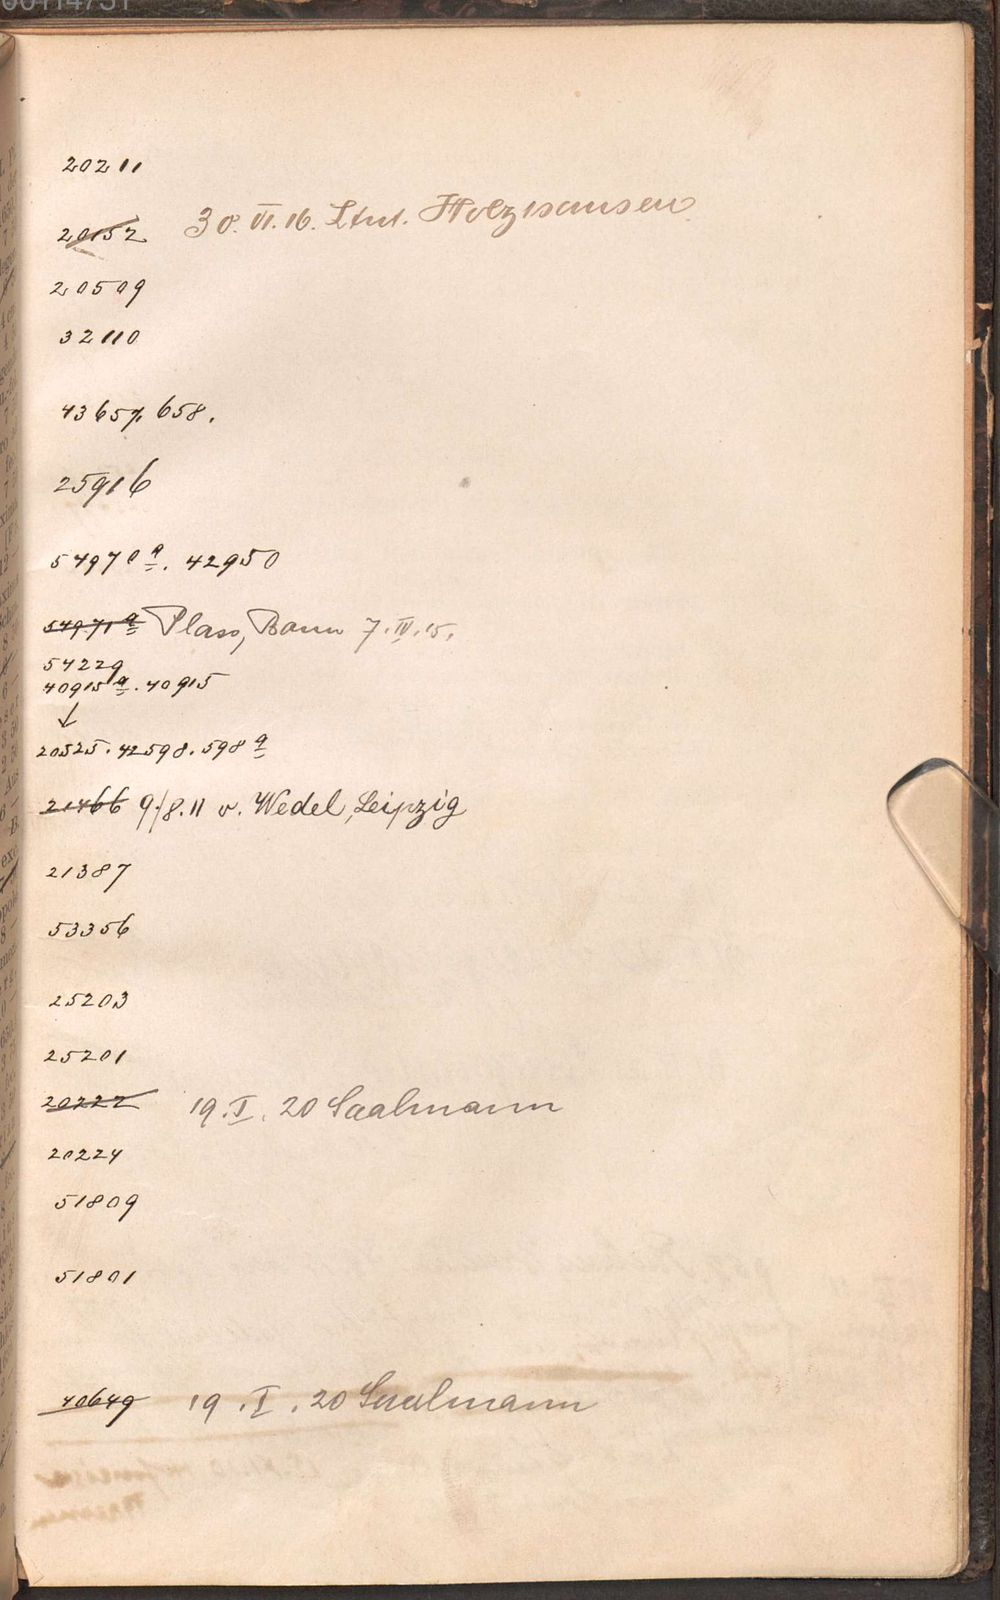 20211
20152 30.VI.16. Ltnt. Holzhausen
20509
32110
43657/ 658.
25916
54970 a. 42950
54971 a Plass, Bonn 7.IV.15.
54229
40915 a. 40915
20525. 42598. 598 a
21466 9/8.11 v. Wedel, Leipzig
21387
53356
25203
25201
20222 19.I.20 Saalmann
20224
51809
51801
40649 19.I.20 Saalmann